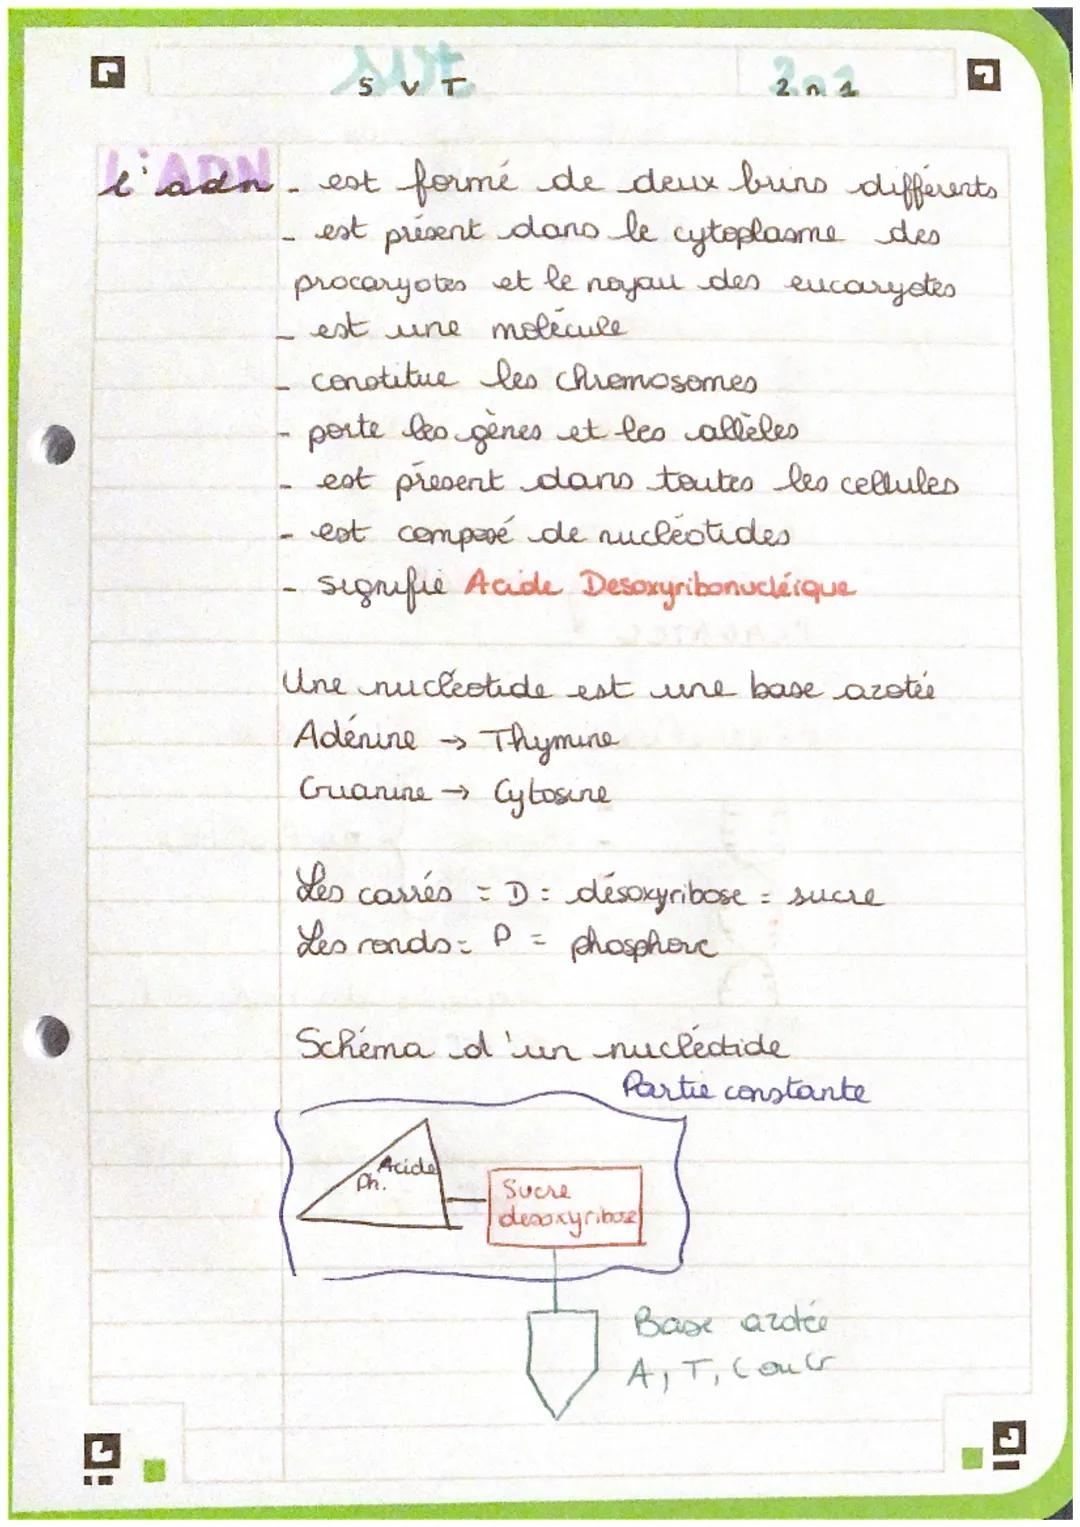 SVT
S V T
2n2
2 n 1
L'ADN
l'adn - est formé de deux brins différents
- est présent dans le cytoplasme des
procaryotes et le noyau des eucaryotes
- est une molécule
- constitue les chromosomes
- porte les gènes et les allèles
- est présent dans toutes les cellules
- est composé de nucléotides
- signifie Acide Desoxyribonucléique
Une nucléotide est une base azotée
Adénine → Thymine
Guanine → Cytosine
Les carrés = D = désoxyribose = sucre
Les ronds = P = phosphore
Schéma d'un nucléotide
Partie constante
Acide
Ph.
Sucre
desoxyribose
Base azotée
A, T, C ou G